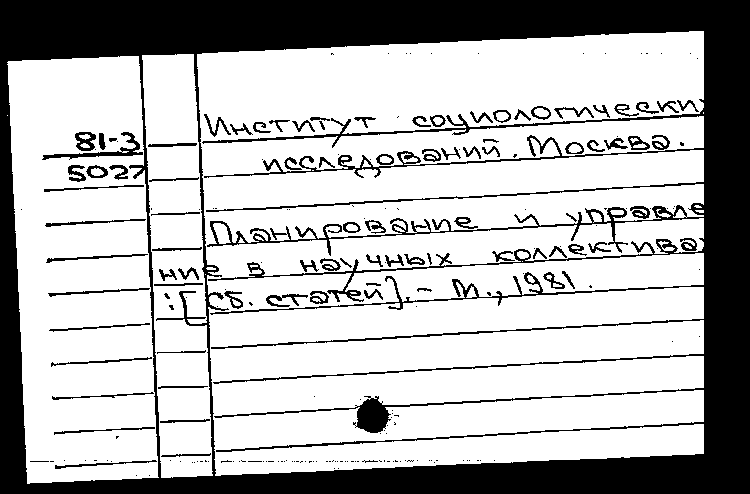 81-3
5027
Институт социологических
исследований. Москва.
Планирование и управле
ние в научных коллективах
: [Сб. статей]. - М., 1981.